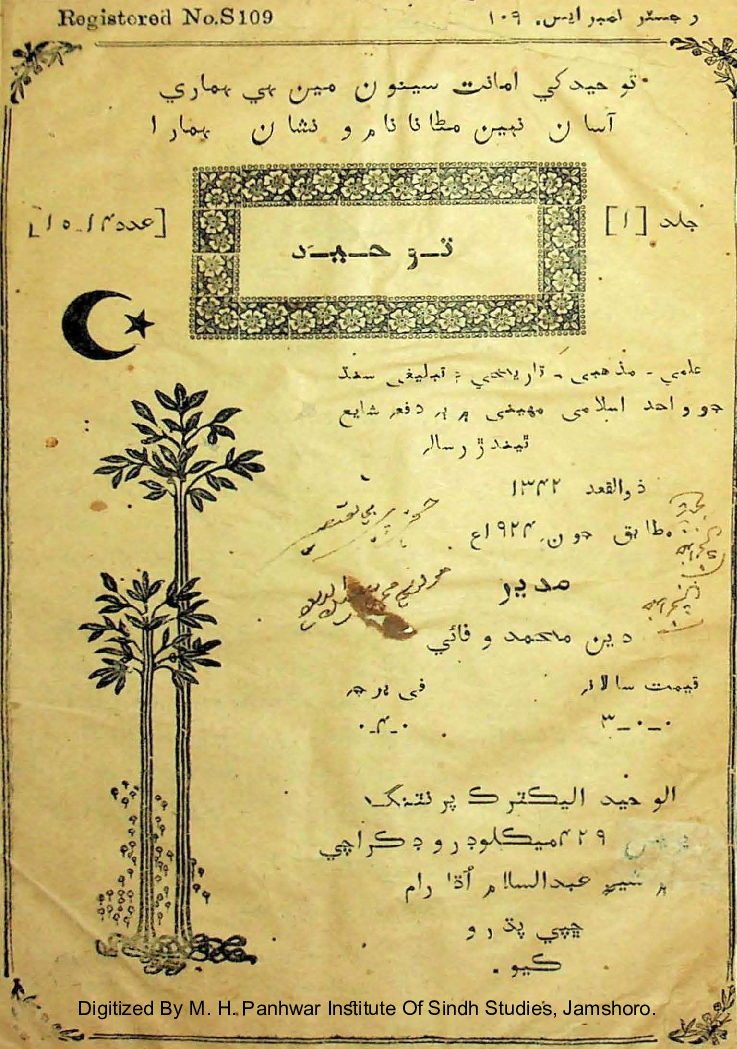 Registered No.S109
رجسٽر نمبر ايس. ۱۰۹
توحيدکي امانت سينون مين هي هماري
آسان نهين مٽانا نام و نشان همارا
جلد [۱]
[عدد ۱۴-۱۵]
توحيد
علمي - مذهبي - تاريخي ۽ تبليغي سنڌ
جو واحد اسلامي مهيني ۾ ٻه دفعه شايع
ٿيندڙ رساله
ذوالقعد ۱۳۴۲
مطابق جون ۱۹۲۴ع
مدير
دين محمد وفائي
قيمت سالانه
۳-۰-۰
في پرچه
۰-۴-۰
الوحيد اليڪٽرڪ پرنٽنگ
۴۲۹ ميڪلوڊ روڊ ڪراچي
۾ شيخ عبدالسلام آڏارام
ڇپي پڌرو
ڪيو.
Digitized By M. H. Panhwar Institute Of Sindh Studies, Jamshoro.